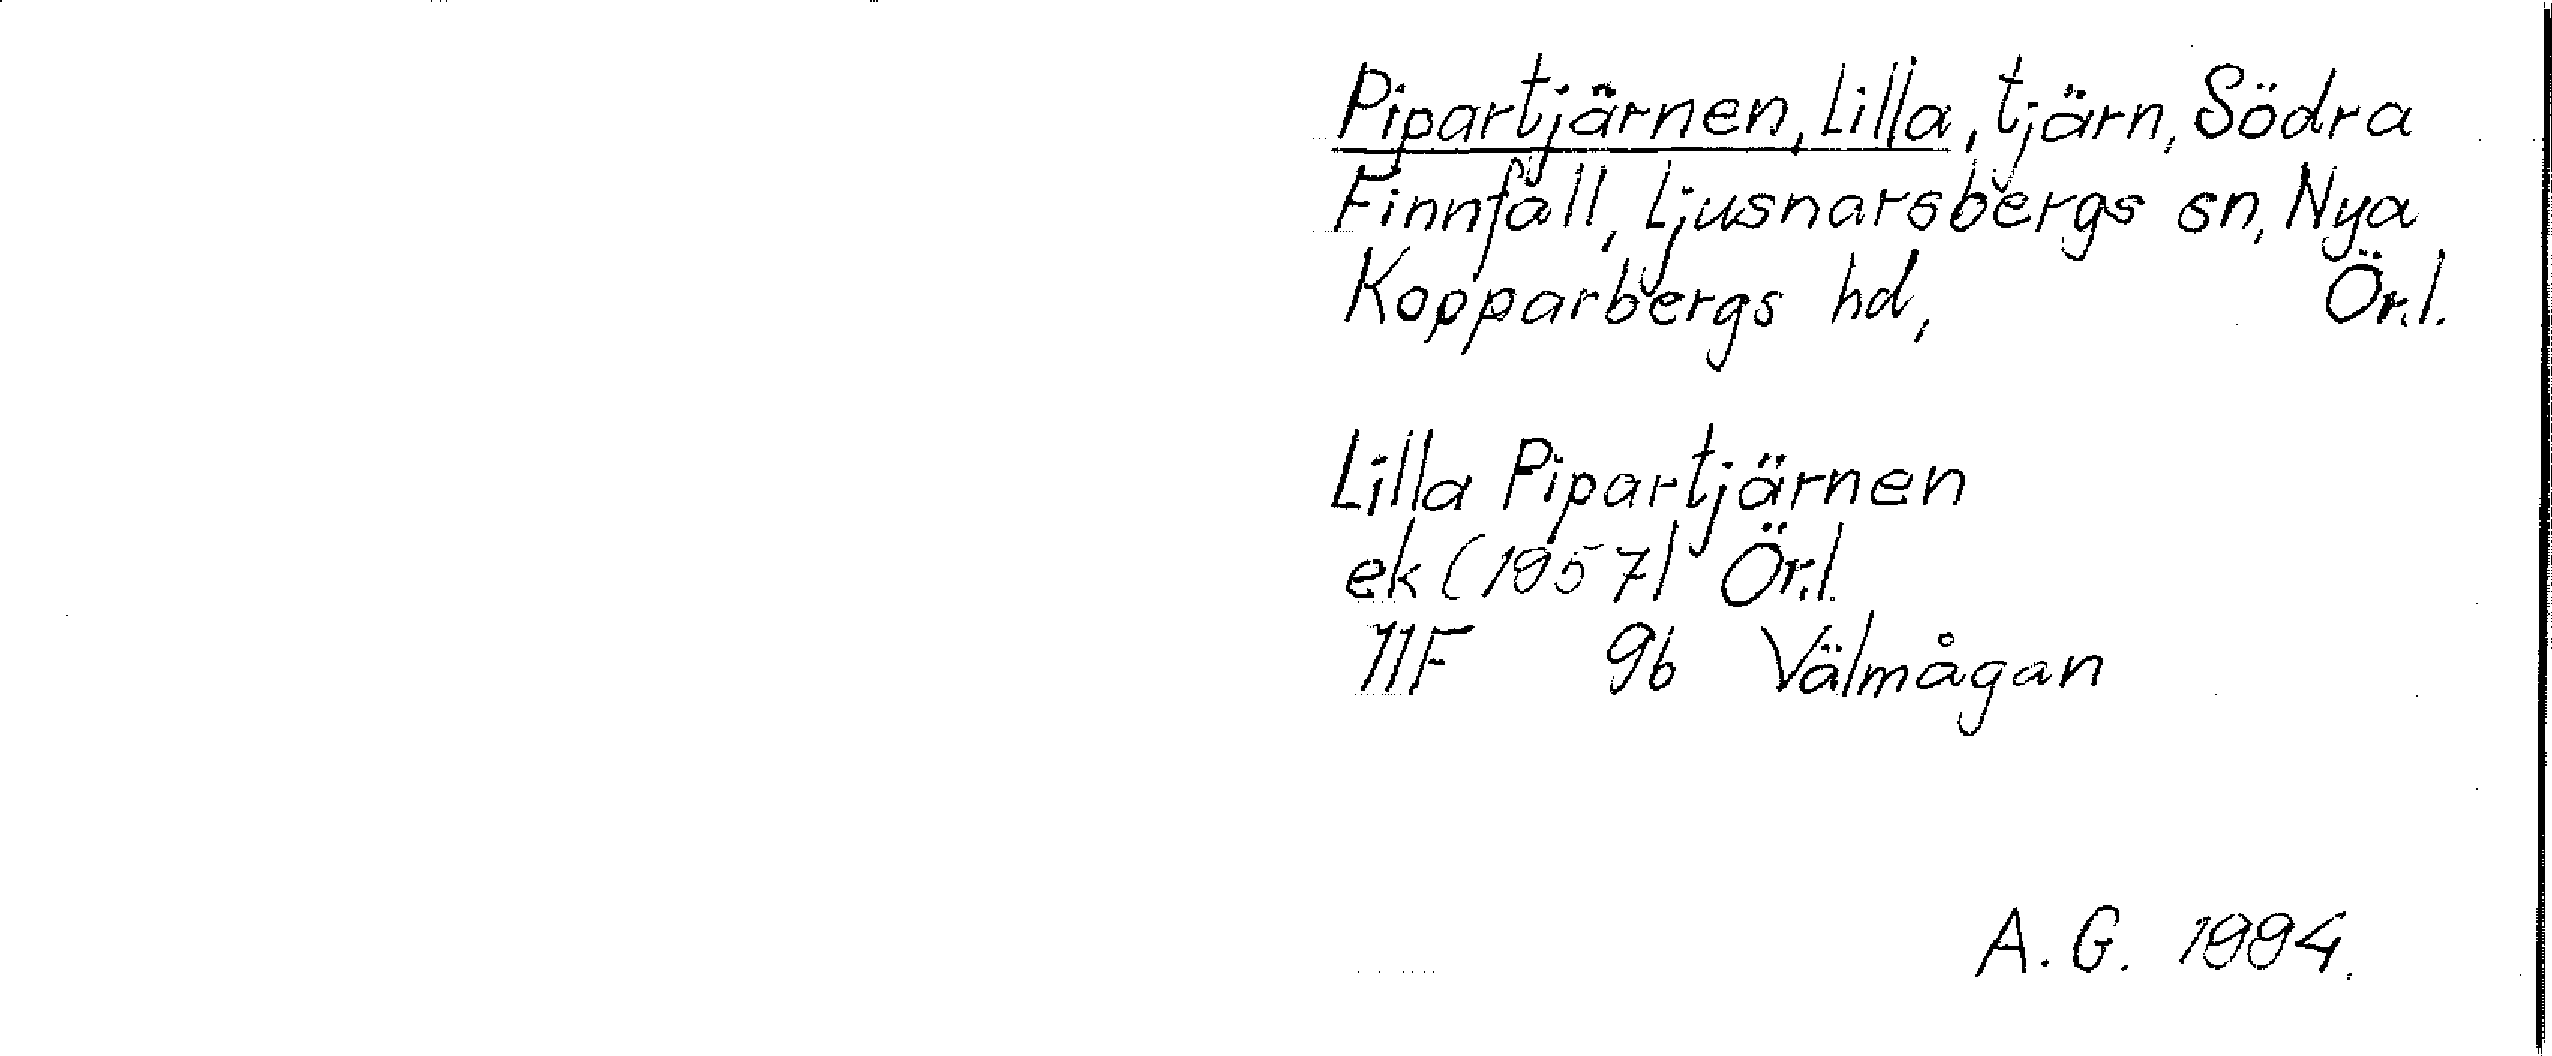 Pipartjärnen, Lilla, tjärn, Södra
Finnfall, Ljusnarsbergs sn, Nya
Kopparbergs hd, Ör.l.
Lilla Pipartjärnen
ek (1957) Ör.l.
11F 9b Välmågan
A. G. 1994.